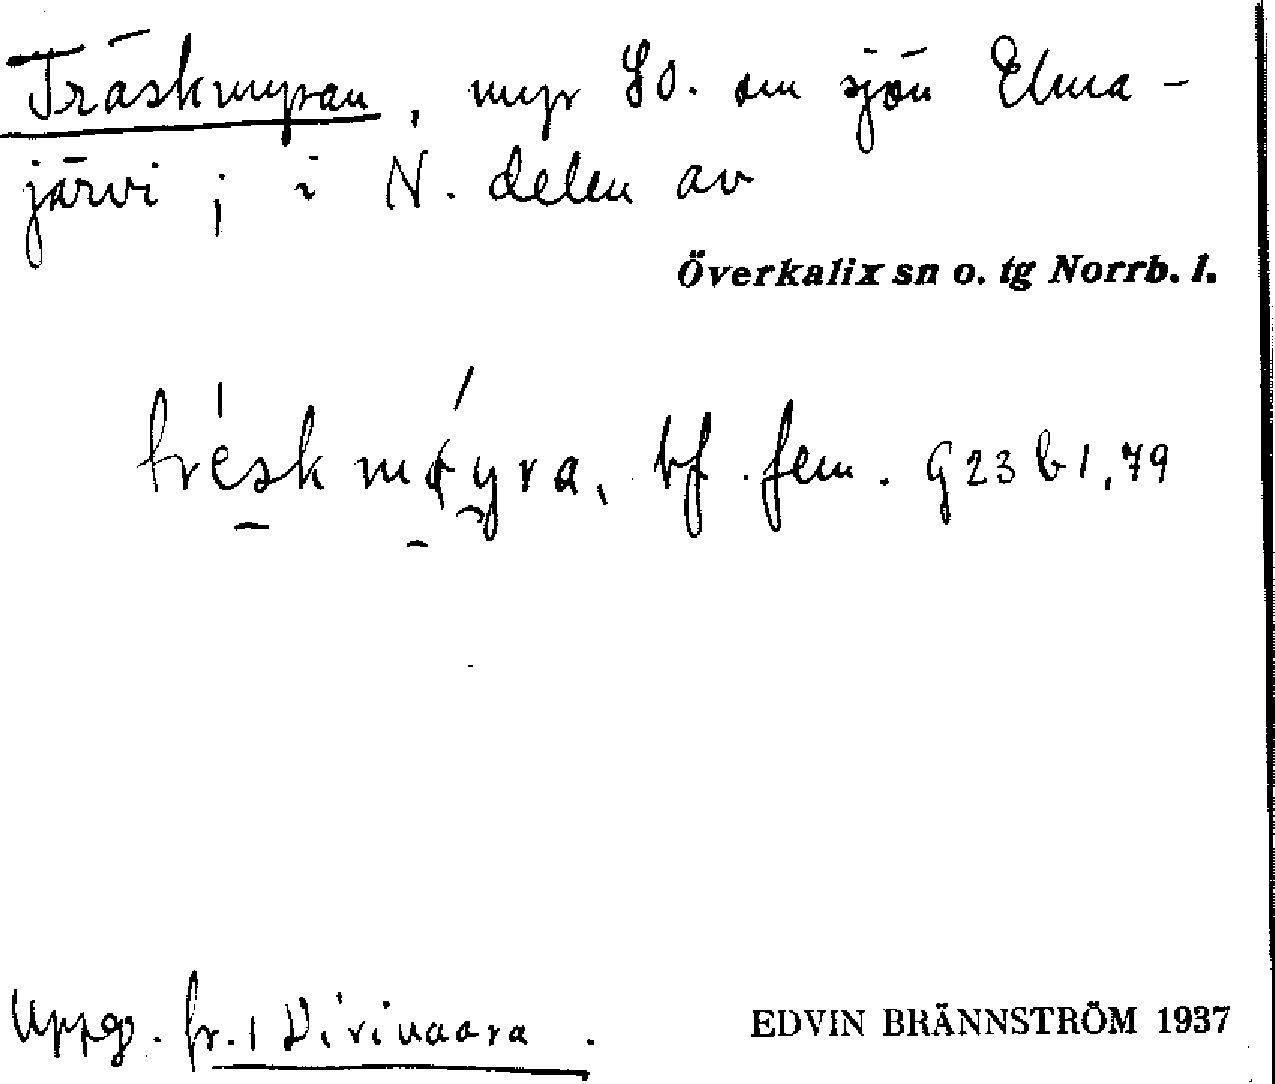 Träskmyran, myr SO. om sjön Elma-
järvi; i N. delen av
Överkalix sn o. tg Norrb. l.
bf. fem. G23 b1,79
Uppg. fr.
EDVIN BRÄNNSTRÖM 1937